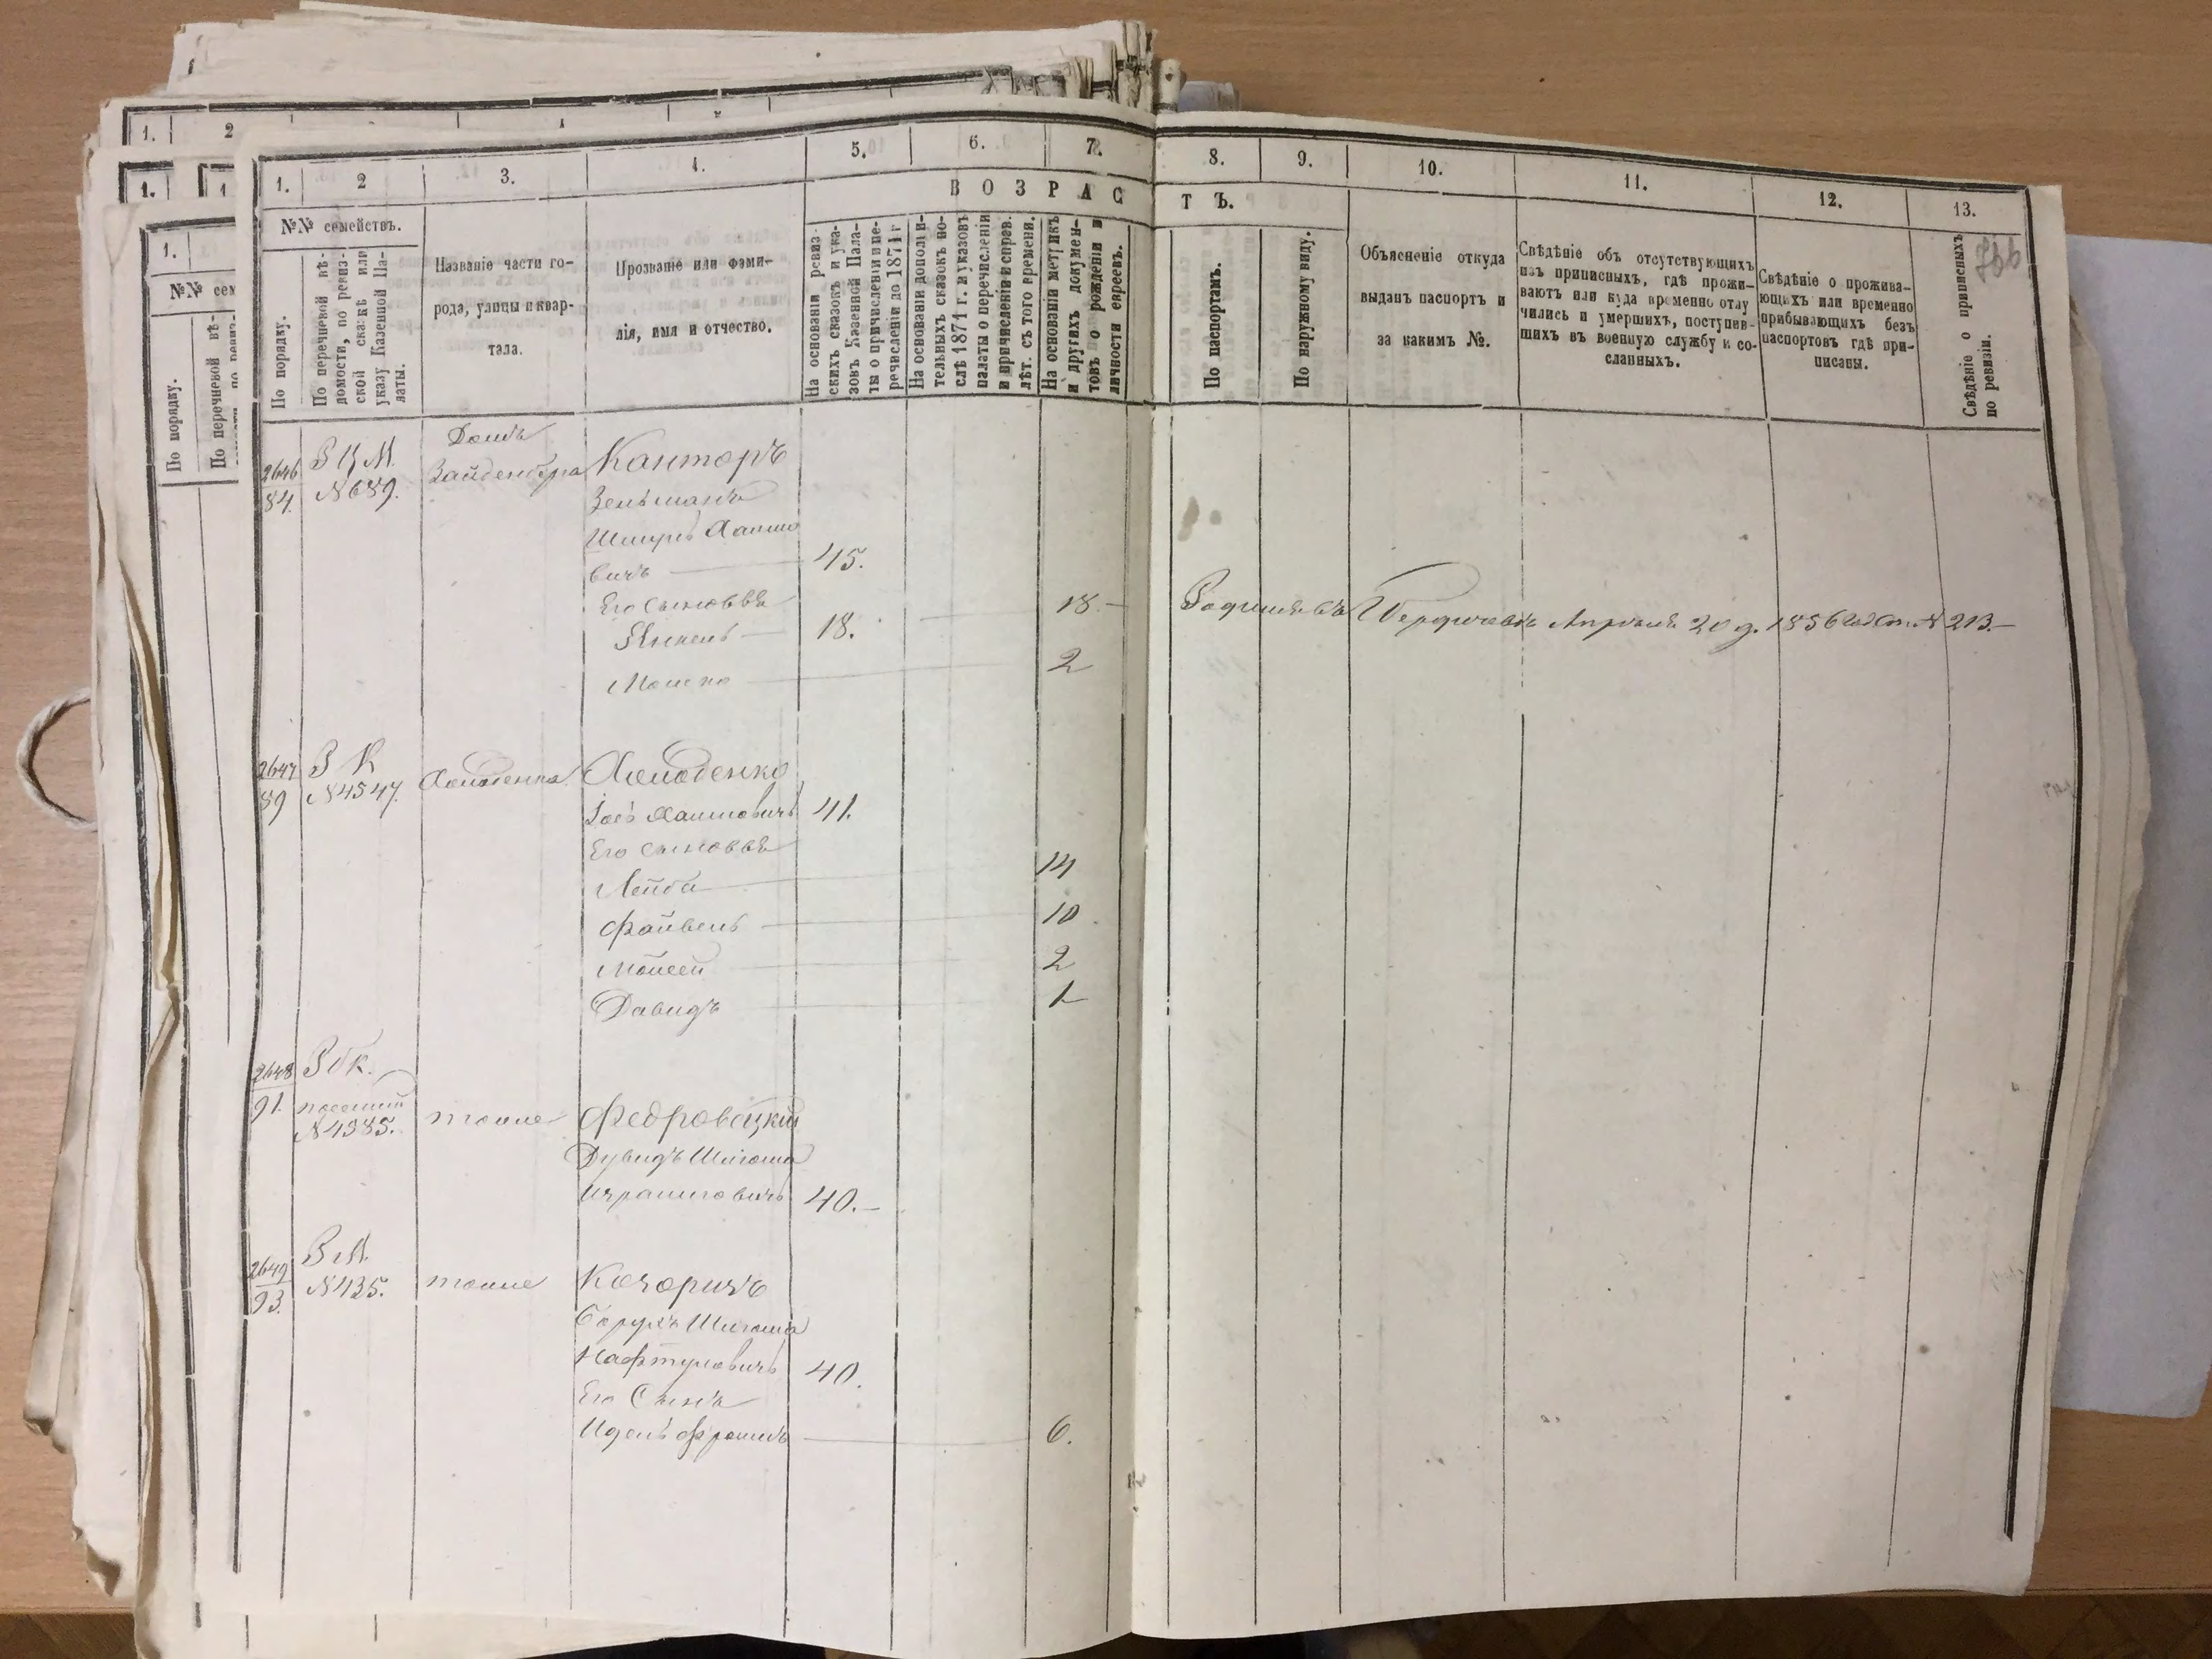 1. 2
1. 1
1.
№№ сем
По порядку.
По перечневой вѣ-
1. 2 3. 4. 5. 6. 7. 8. 9. 10. 11. 12. 13.
№№ семействъ.
В О З Р А С Т Ъ.
По порядку.
По перечневой вѣ-
домости, по ревиз-
ской сказкѣ или
указу Казенной Па-
латы.
Названіе части го-
рода, улицы и квар-
тала.
Прозваніе или фами-
лія, имя и отчество.
На основаніи ревиз-
скихъ сказокъ и ука-
зовъ Казенной Пала-
ты о причисленіи и пе-
речисленіи до 1871 г
На основаніи дополни-
тельныхъ сказокъ по-
слѣ 1871 г. и указовъ
палаты о перечисленіи
и причисленіи и справ.
лѣт. съ того времени.
На основаніи метрикъ
и другихъ докумен-
товъ о рожденіи и
личности евреевъ.
По паспортамъ.
По наружному виду.
Объясненіе откуда
выданъ паспортъ и
за какимъ №.
Свѣдѣніе об отсутствующихъ
изъ приписныхъ, гдѣ прожи-
ваютъ или куда временно отлу
чились и умершихъ, поступив-
шихъ въ военную службу и со-
сланныхъ.
Свѣдѣніе о прожива-
ющихъ или временно
прибывающихъ безъ
паспортовъ гдѣ при-
писаны.
Свѣдѣніе о приписныхъ
по ревизіи.
2646
84.
№689.
Домъ
Зайденбера
Канторъ
Зельманъ
Шмуль Хаимо
вичъ 45.
Его сыновья
Янкель 18. 18. Родился въ Бердичевѣ Апрѣля 20 д. 1856 № 213.
Мошко 2
2647
89
З К
№4547.
Холоденка
Холоденко
Іось Хаимовичъ 41.
Его сыновья
Лейба 14
Файвель 10
Мойсей 2
Давидъ 1
2648
91.
№4385.
тоже
Федровецкій
Дувидъ Шлиома
Израилевичъ 40.
2649
93.
З М.
№435.
тоже
Кочоричъ
Борухъ Шлиома
Нафтуловичъ 40.
Его Сынъ
Идель Фроимъ 6.